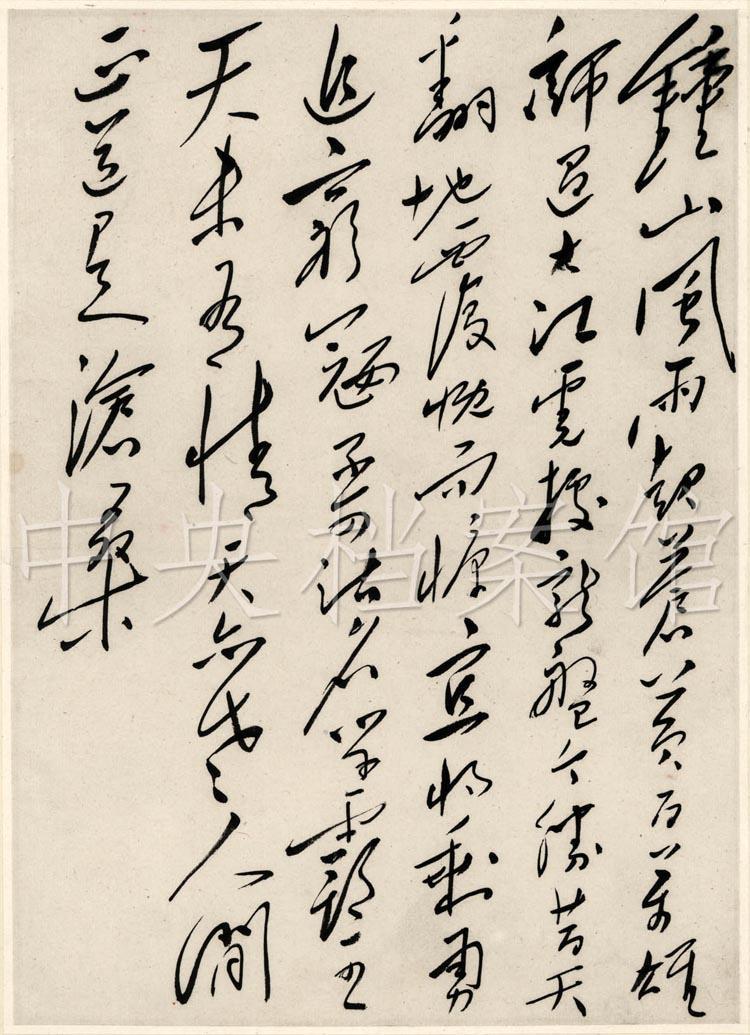 鍾山風雨起蒼黃百萬雄
師過大江虎據龍盤今勝昔天
翻地覆慨而慷宜將剩勇
追窮寇不可沽名學霸王
天未有情天亦老人間
正道是滄桑
中央档案馆